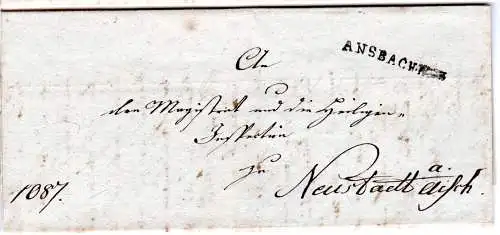 ANSBACH
An
den Magistrat und die Heiligen-
Inspection
zu
Neustadt a. Aisch.
1087.